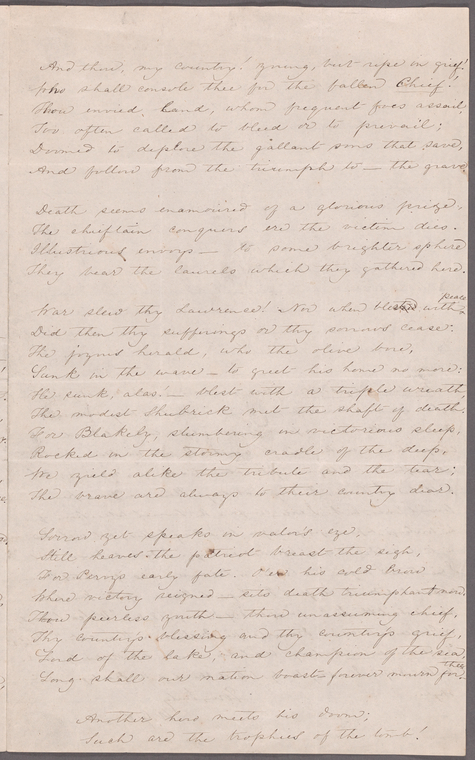 And thou, my country! young, but ripe in grief!
Who shall console thee for the fallen Chief!
Thou envied Land, whom frequent foes assail,
Too often called to bleed or to prevail;
Doomed to deplore the gallant sons that save,
And follow from the triumph to — the grave

Death seems enamoured of a glorious prize.
The chieftain conquers ere the victim dies.
Illustrious envoys — to some brighter sphere
They bear the laurels which they gathered here.

War slew thy Lawrence! Nor when blest with peace
Did then thy sufferings or thy sorrows cease.
The joyous herald, who the olive bore,
Sunk in the wave — to greet his home no more:
He sunk, alas! — blest with a triple wreath,
The modest Shubrick met the shaft of death.
For Blakely, slumbering in victorious sleep,
Rocked in the stormy cradle of the deep,
We yield alike the tribute and the tear;
The brave are always to their country dear.

Sorrow yet speaks in valor's eye,
Still heaves the patriot breast the sigh,
For Perry's early fate. O'er his cold brow
Where victory reigned — sits death triumphant now.
Thou peerless youth — thou unassuming chief,
Thy country's blessing and thy country's grief,
Lord of the lake, and champion of the sea,
Long shall our nation boast — forever mourn for thee

Another hero meets his doom;
Such are the trophies of the tomb!